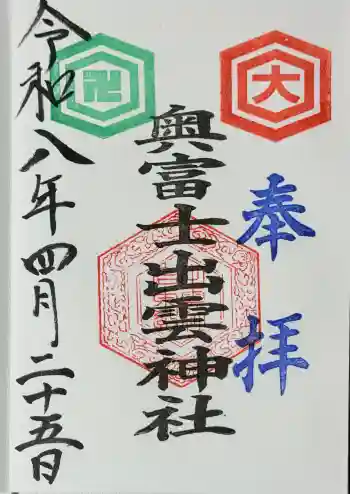 奉拝
大
奥富士出雲神社
卍
令和八年四月二十五日